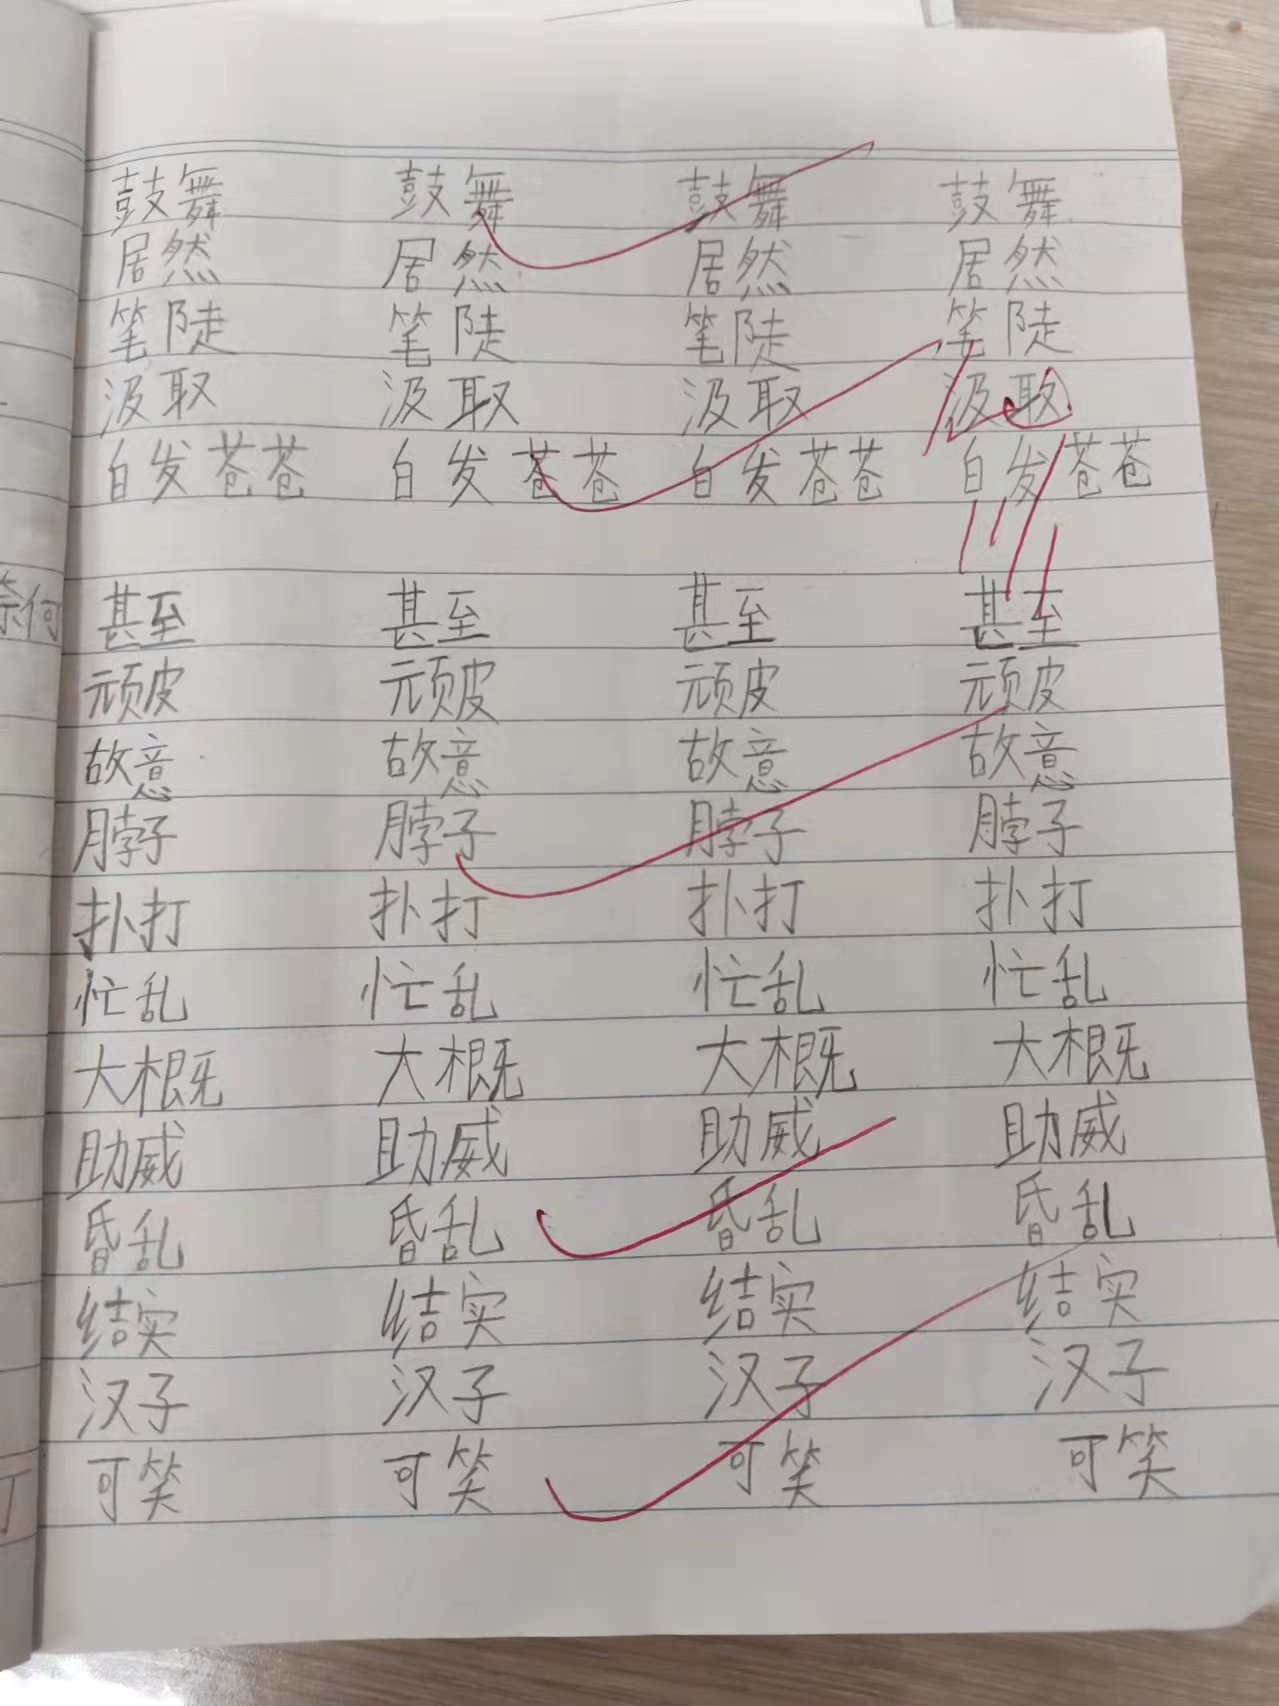 鼓舞 鼓舞 鼓舞 鼓舞
居然 居然 居然 居然
笔陡 笔陡 笔陡 笔陡
汲取 汲取 汲取 汲取
白发苍苍 白发苍苍 白发苍苍 白发苍苍
奈何 甚至 甚至 甚至 甚至
顽皮 顽皮 顽皮 顽皮
故意 故意 故意 故意
脖子 脖子 脖子 脖子
扑打 扑打 扑打 扑打
忙乱 忙乱 忙乱 忙乱
大概 大概 大概 大概
助威 助威 助威 助威
昏乱 昏乱 昏乱 昏乱
结实 结实 结实 结实
汉子 汉子 汉子 汉子
可笑 可笑 可笑 可笑